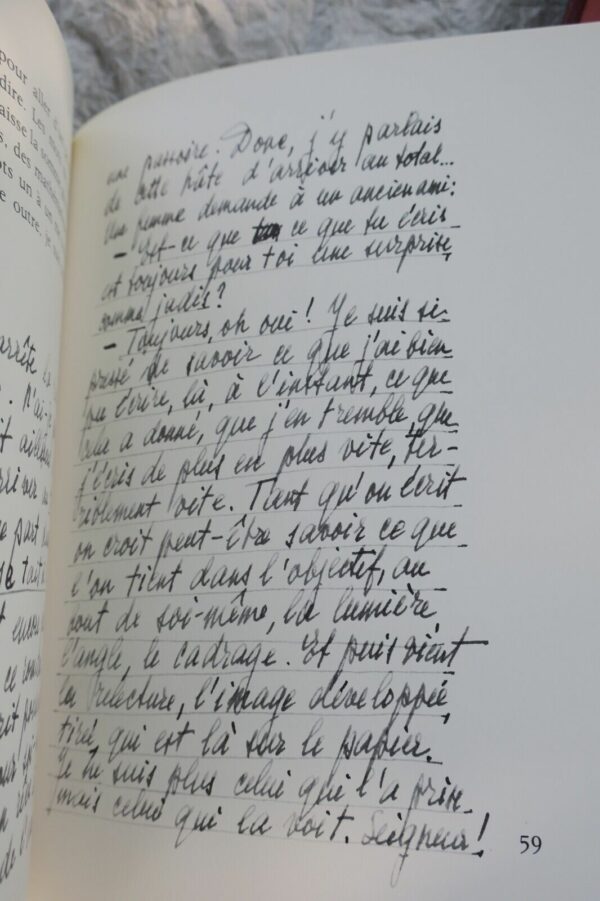 pour aller
dire. Les
aisse la
s, des
ots un à un
e outre, je
arrête
N'ai-je
t
rriver
e part
encore
ce
rit pour
de l'
une passoire. Donc, j'y parlais
de cette hâte d'arriver au total...
Une femme demande à un ancien ami:
– Est-ce que ce que tu écris
est toujours pour toi une surprise,
comme jadis?
– Toujours, oh oui! Je suis si
pressé de savoir ce que j'ai bien
pu écrire, là, à l'instant, ce que
cela a donné, que j'en tremble, que
j'écris de plus en plus vite, ter-
riblement vite. Tant qu'on écrit
on croit peut-être savoir ce que
l'on tient dans l'objectif, au
bout de soi-même, la lumière,
l'angle, le cadrage. Et puis vient
la relecture, l'image développée,
tirée, qui est là sur le papier.
Je ne suis plus celui qui l'a prise
mais celui qui la voit. Seigneur!
59